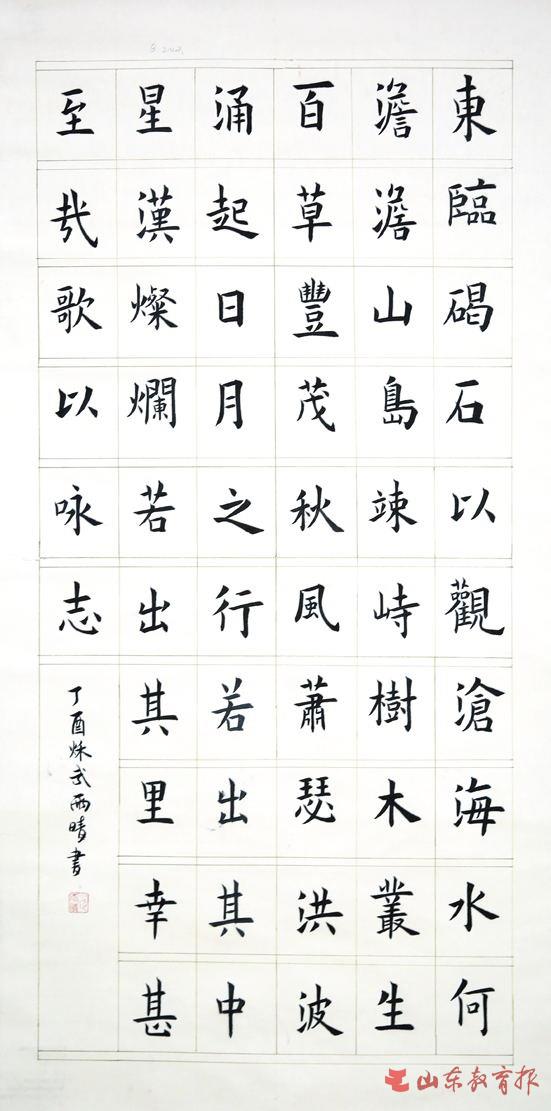 東臨碣石以觀滄海水何
澹澹山島竦峙樹木叢生
百草豐茂秋風蕭瑟洪波
涌起日月之行若出其中
星漢燦爛若出其里幸甚
至哉歌以咏志
丁酉秌武雨晴書
山东教育报